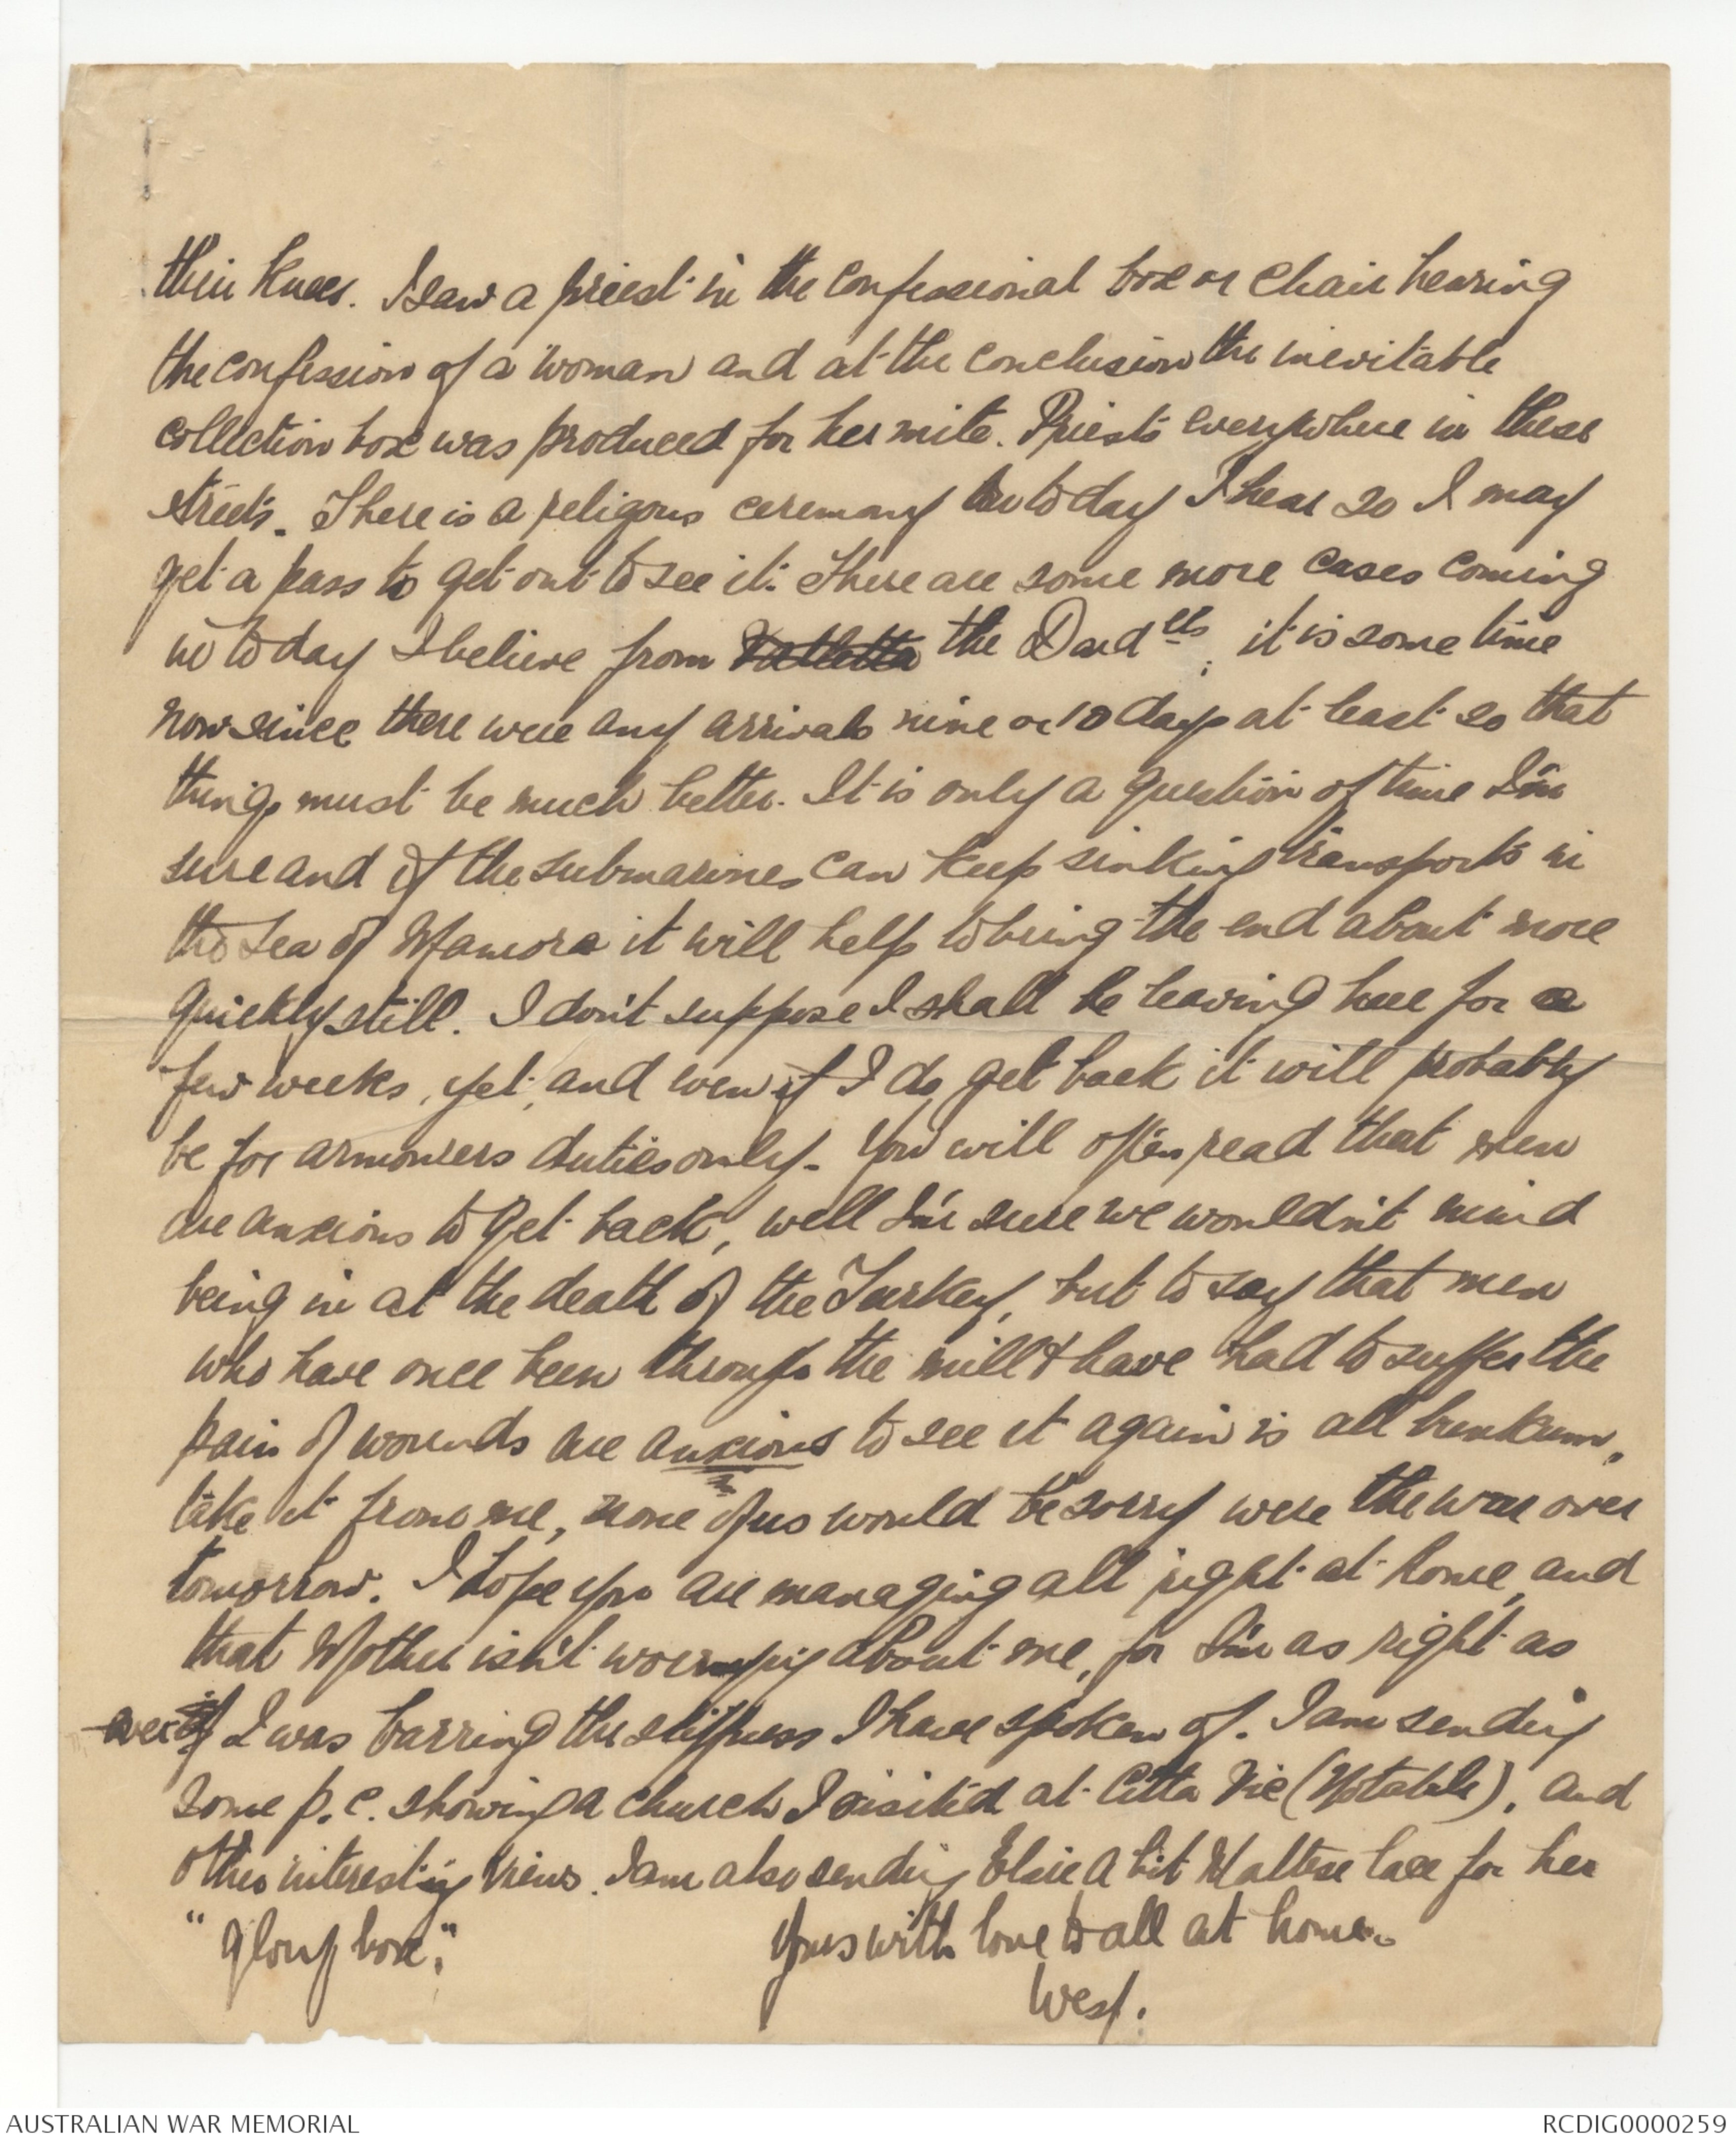 their knees. I saw a priest in the confessional box or chair hearing
the confession of a woman and at the conclusion the inevitable
collection box was produced for her mite. Priests everywhere in these
streets. There is a religous ceremony today I hear so I may
get a pass to get out to see it. There are some more cases coming
in today I believe from Valletta the Dardlls, it is some time
now since there were any arrivals nine or 10 days at least so that
things must be much better. It is only a question of time I'm
sure and if the submarines can keep sinking transports in
the Sea of Mamora it will help to bring the end about more
quickly still. I don't suppose I shall be leaving here for a
few weeks, yet, and even if I do, get back it will probably
be for armourers duties only. You will often read that men
are anxious to get back, well I'm sure we wouldn't mind
being in at the death of the Turkey, but to say that men
who have once been through the mill & have had to suffer the
pain of wounds are anxious to see it again is all bunkum,
take it from me, none of us would be sorry were the war over
tomorrow. I hope you are managing all right at home, and
that Mother isn't worrying about me, for I'm as right as
ever I was barring the stiffness I have spoken of. I am sending
some p.c. showing a church I visited at Citta Vie (Notabile), and
other interesting views. I am also sending Elsie a bit Maltese lace for her
"glory box". Yours with love to all at home.
Wesy.
AUSTRALIAN WAR MEMORIAL
RCDIG0000259